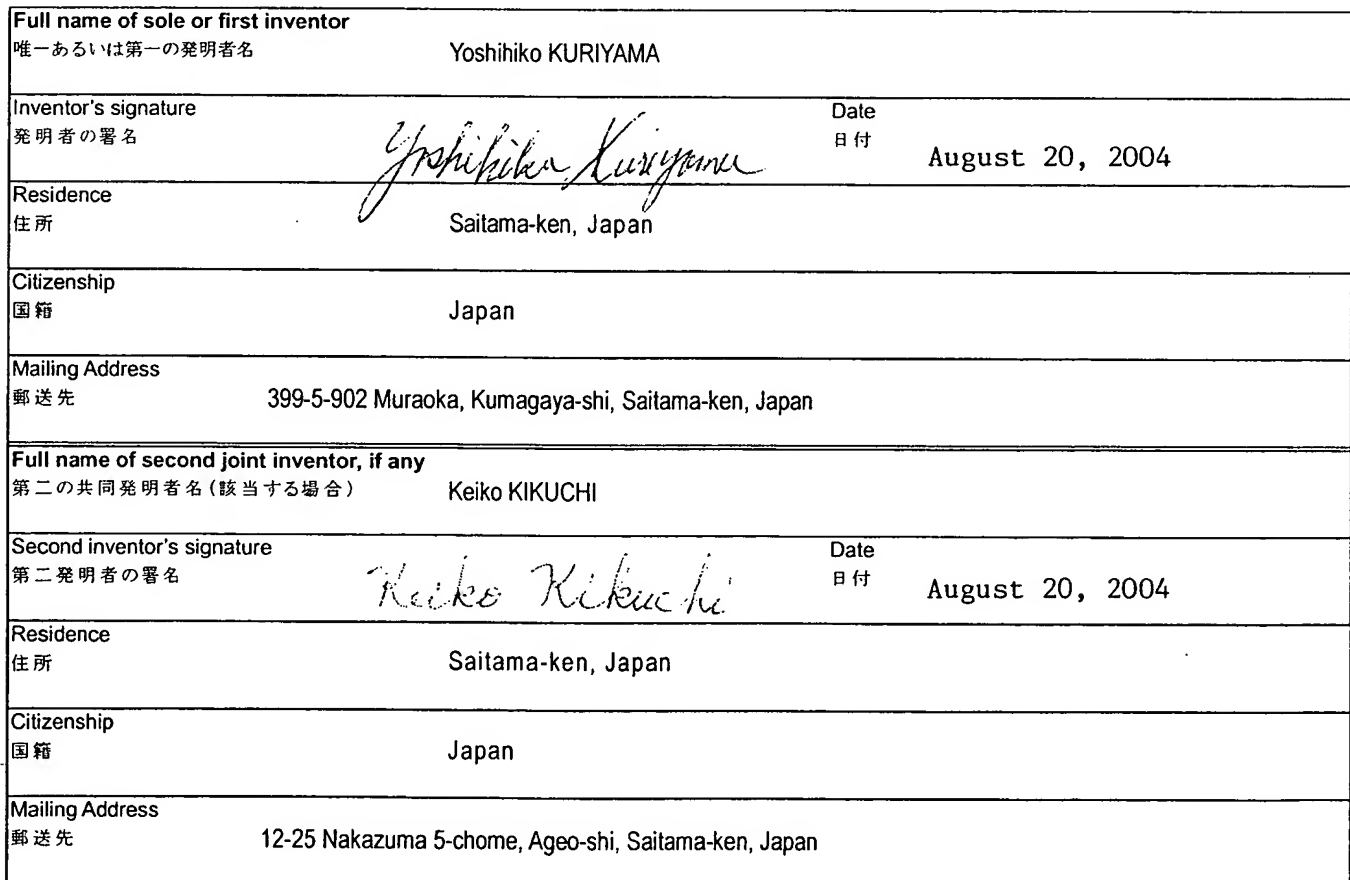 Full name of sole or first inventor
唯一あるいは第一の発明者名 Yoshihiko KURIYAMA
Inventor's signature Date
発明者の署名 Yoshihiko Kuriyama 日付 August 20, 2004
Residence
住所 Saitama-ken, Japan
Citizenship
国籍 Japan
Mailing Address
郵送先 399-5-902 Muraoka, Kumagaya-shi, Saitama-ken, Japan
Full name of second joint inventor, if any
第二の共同発明者名(該当する場合) Keiko KIKUCHI
Second inventor's signature Date
第二発明者の署名 Keiko Kikuchi 日付 August 20, 2004
Residence
住所 Saitama-ken, Japan
Citizenship
国籍 Japan
Mailing Address
郵送先 12-25 Nakazuma 5-chome, Ageo-shi, Saitama-ken, Japan